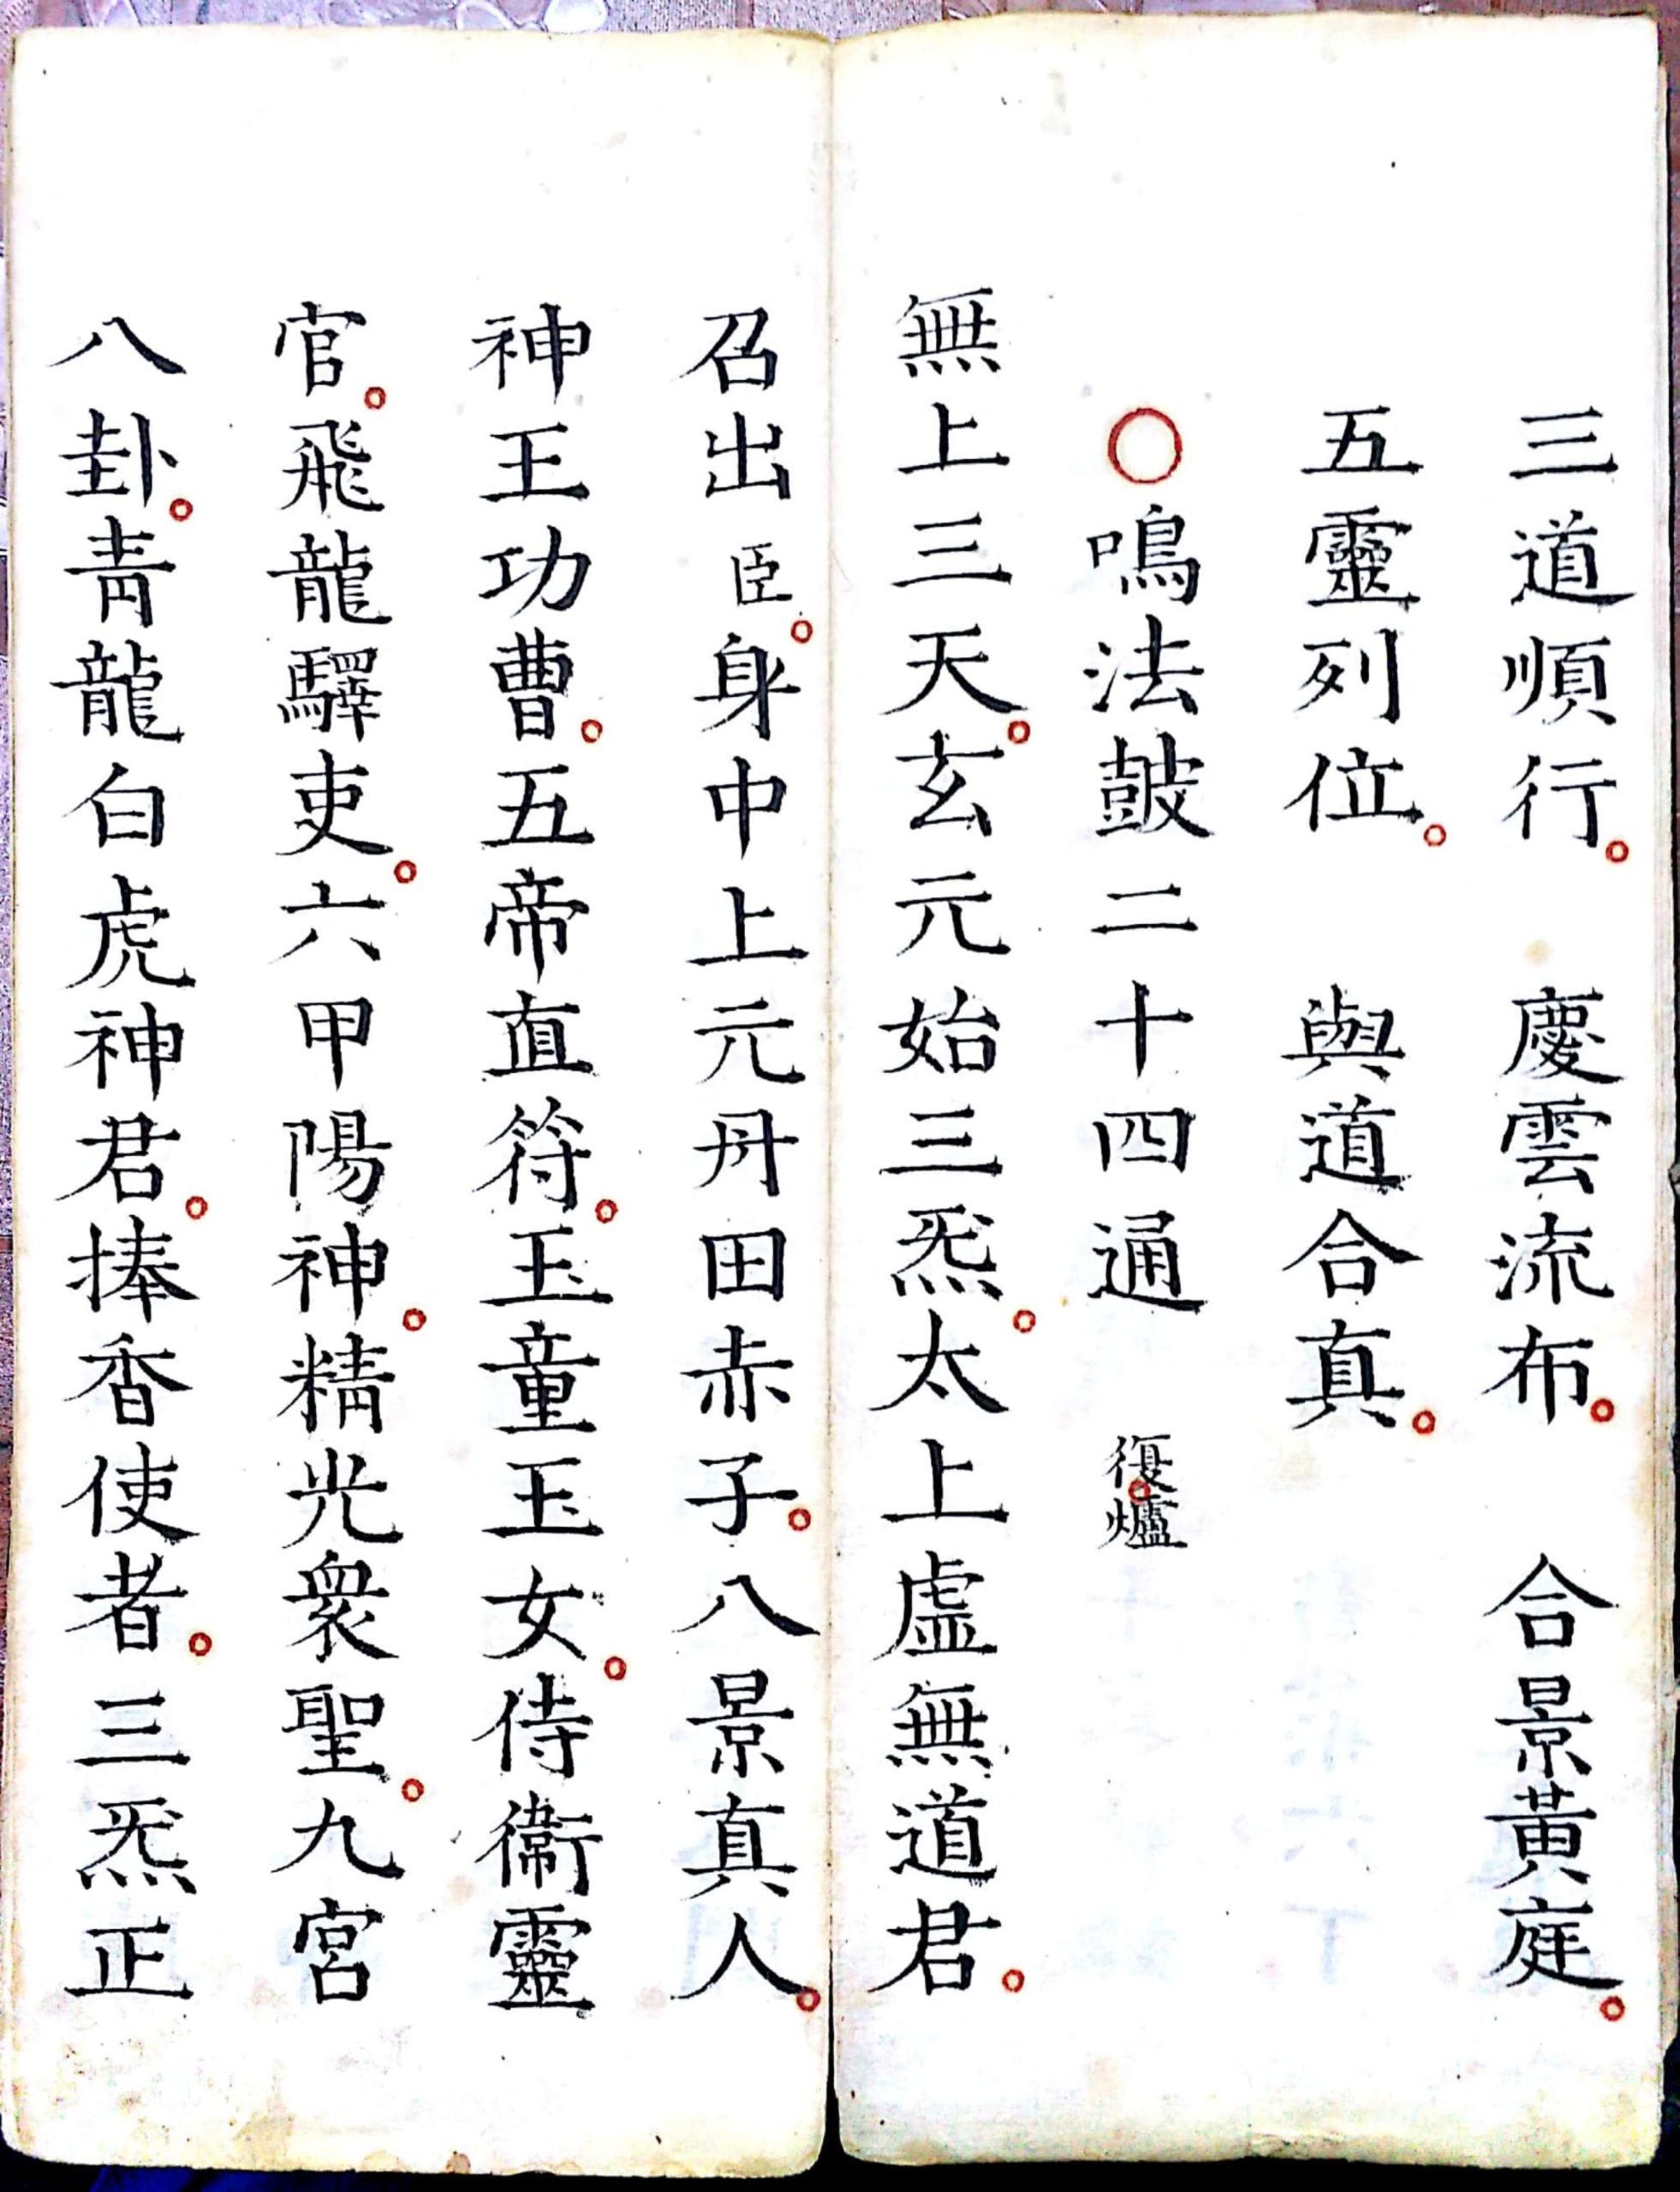 三道順行。慶雲流布。合景黃庭。
五靈列位。與道合真。
〇鳴法皷二十四通 復爐
無上三天。玄元始三炁。太上虛無道君。
召出臣。身中上元丹田赤子。八景真人。
神王功曹。五帝直符。玉童玉女。侍衞靈
官。飛龍驛吏。六甲陽神。精光衆聖。九宮
八卦。青龍白虎神君。捧香使者。三炁正